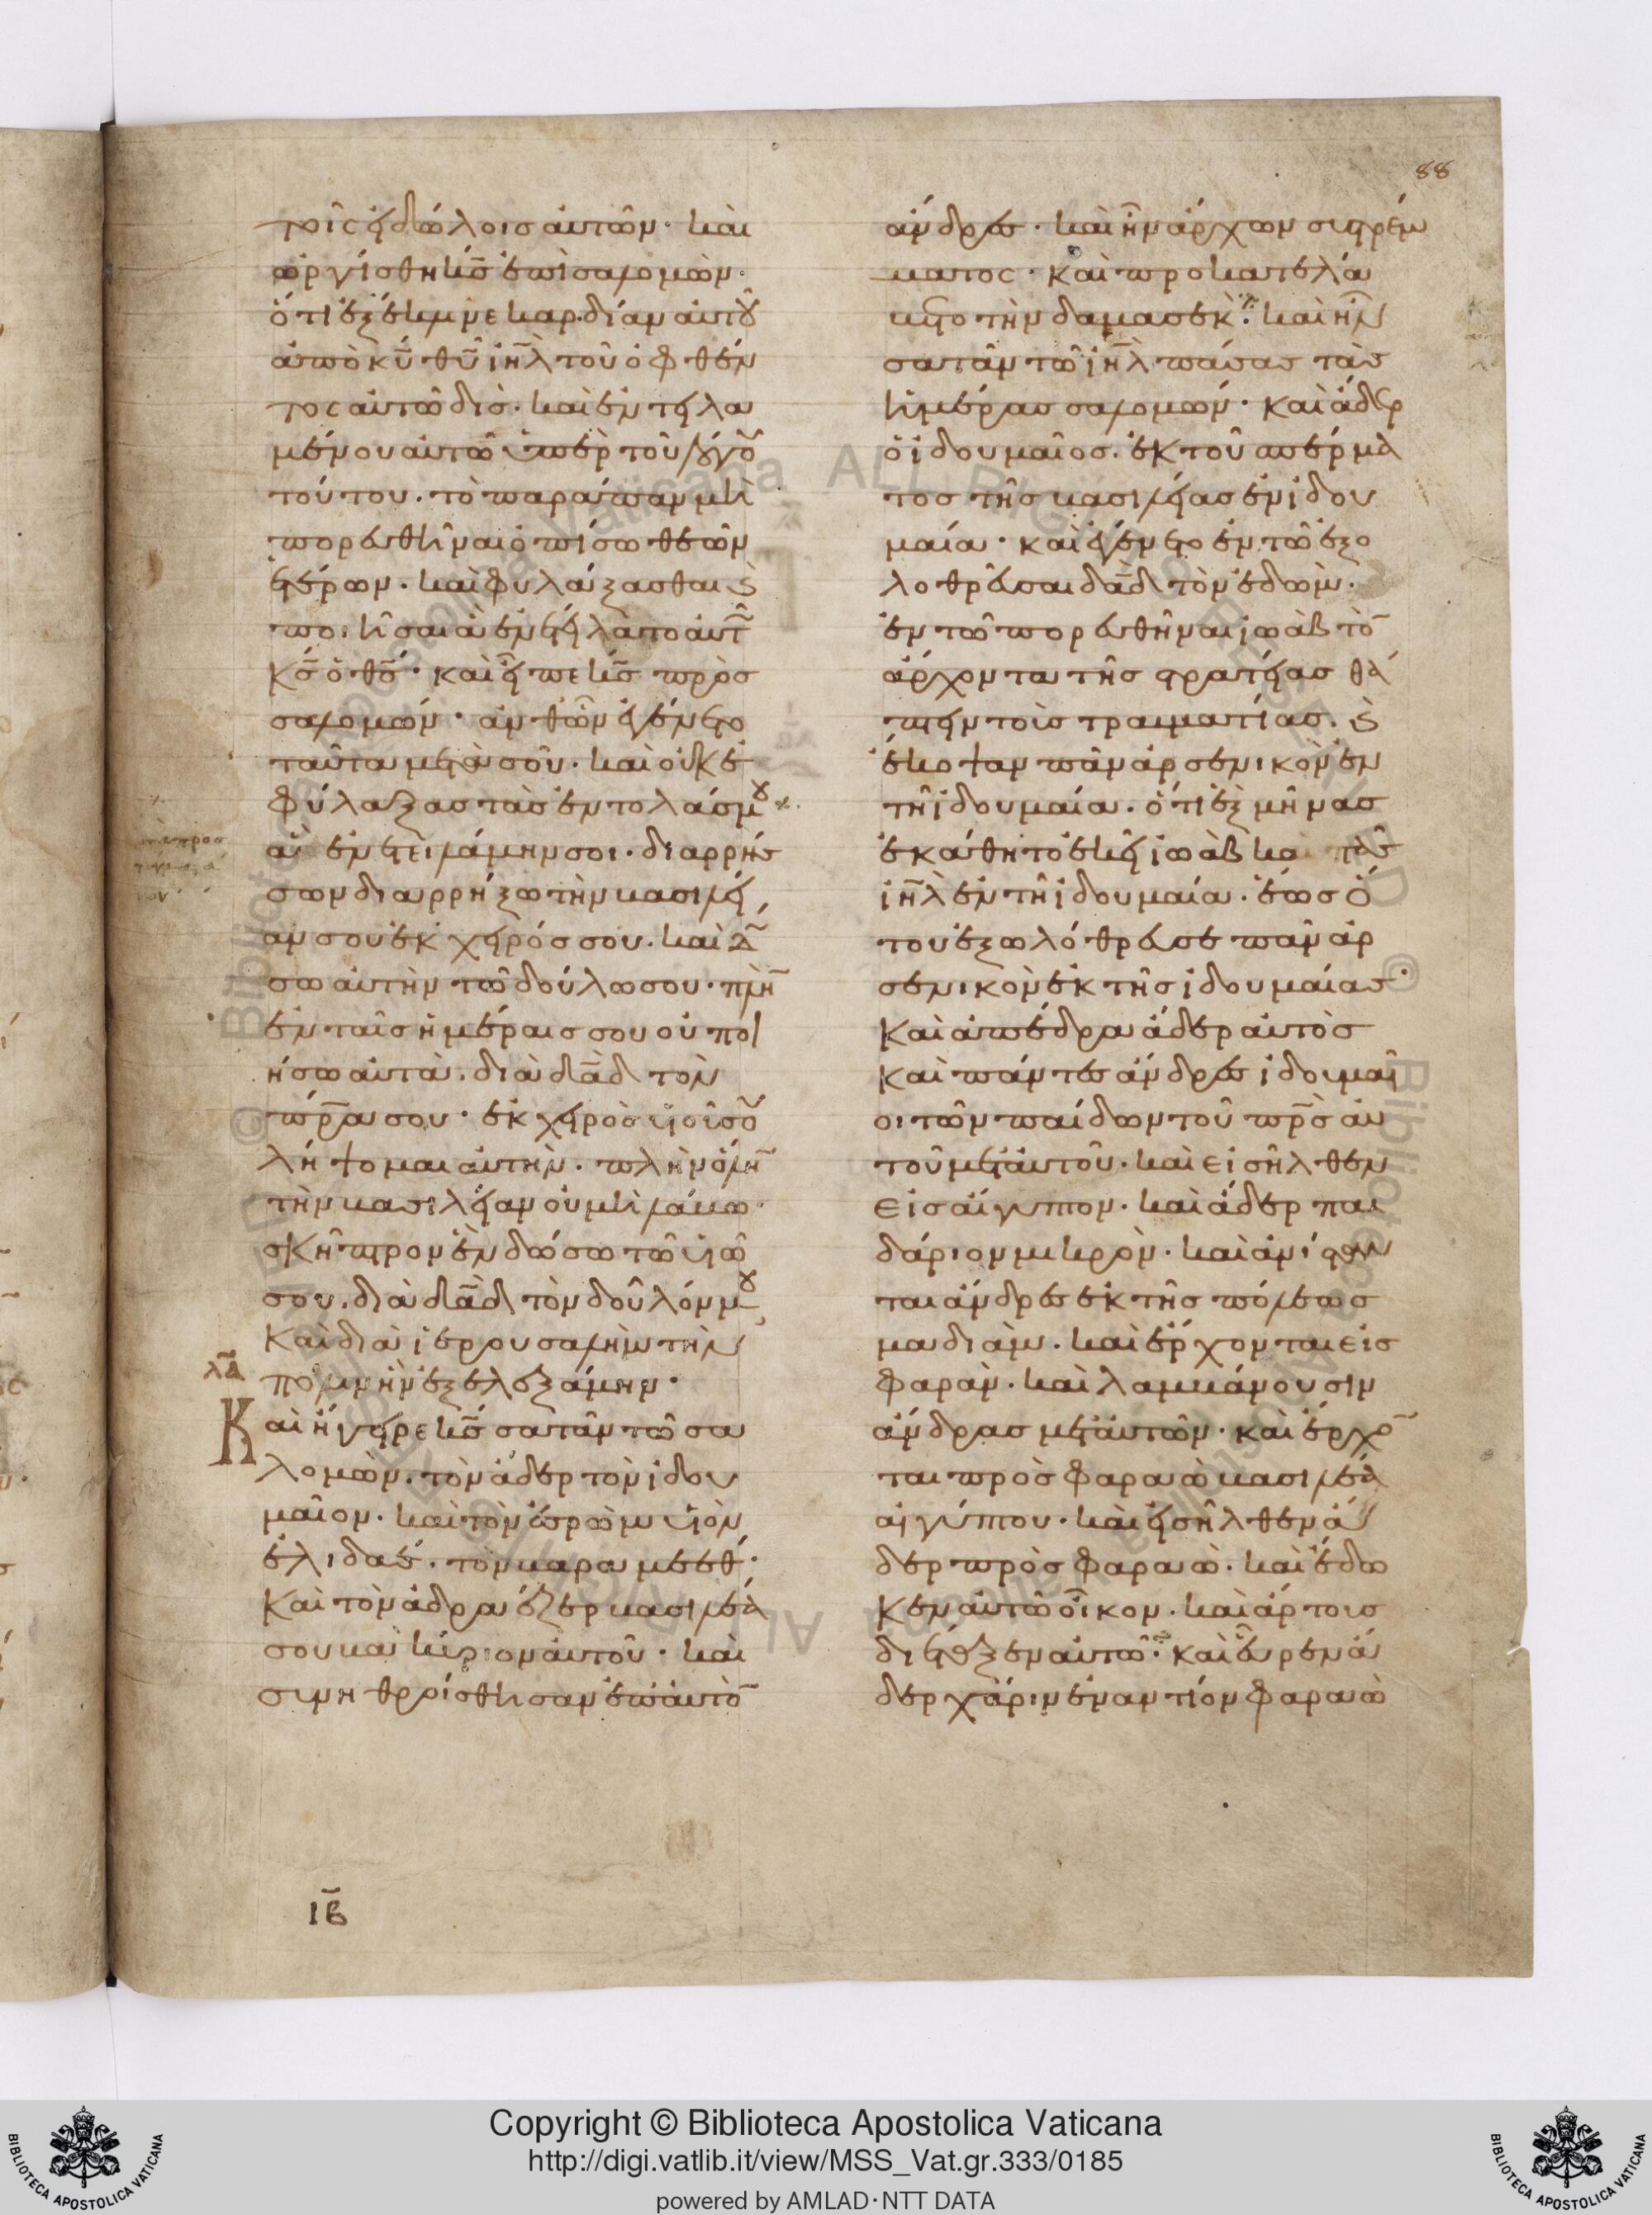 88
τοῖς εἰδώλοις αὐτῶν· καὶ
ὠργίσθη κ̅ς̅ ἐπὶ σαλομών·
ὅτι ἐξέκλινε καρδίαν αὐτοῦ
ἀπὸ κ̅υ̅ θ̅υ̅ ἰ̅η̅λ̅ τοῦ ὀφθέν
τος αὐτῶ δίς· καὶ ἐντειλα
μένου αὐτῶ ὑπὲρ τοῦ λόγου
τούτου· τὸ παράπαν μὴ
πορευθῆναι ὀπίσω θεῶν
ἑτέρων· καὶ φυλάξασθαι ϗ
ποιῆσαι ἃ ἐνετείλατο αὐτῶ
κ̅ς̅ ὁ θ̅ς̅· καὶ εἶπε κ̅ς̅ πρὸς
σαλομών· ἀνθῶν ἐγένετο
ταῦτα μετὰ σοῦ· καὶ οὐκ ἐ
φύλαξας τὰς ἐντολάς μου
ἃ ἐνετειλάμην σοι· διαρρήσ
σων διαρρήξω τὴν βασιλεί
αν σου ἐκ χειρός σου· καὶ δώ
σω αὐτὴν τῶ δούλω σου· πλὴν
ἐν ταῖς ἡμέραις σου οὐ ποι
ήσω αὐτὰ· διὰ δ̅α̅δ̅ τὸν
π̅ρ̅α̅ σου· ἐκ χειρὸς υἱοῦ σου
λήψομαι αὐτήν· πλὴν ὅλην
τὴν βασιλείαν οὐ μὴ λάβω·
σκῆπτρον ἓν δώσω τῶ υἱῶ
σου· διὰ δ̅α̅δ̅ τὸν δοῦλόν μου
καὶ διὰ ἱερουσαλὴμ τὴν
πόλιν ἣν ἐξελεξάμην·
λδ
Καὶ ἤγειρε κ̅ς̅ σατᾶν τῶ σα
λομών· τὸν ἄδερ τὸν ἰδου
μαῖον· καὶ τὸν ἐσρὼμ υἱὸν
ἐλιδαέ· τὸν βαραμεέθ·
καὶ τὸν ἀδραέζερ βασιλέα
σουβὰ κύριον αὐτοῦ· καὶ
συνηθροίσθησαν ἐπ' αὐτὸν
ἄνδρες· καὶ ἦν ἄρχων συστρέμ
ματος· καὶ προκατελά
βετο τὴν δαμασέκ· καὶ ἦν
σατᾶν τῶ ἰ̅η̅λ̅ πάσας τὰς
ἡμέρας σαλομών· καὶ ἄδερ
ὁ ἰδουμαῖος· ἐκ τοῦ σπέρμα
τος τῆς βασιλείας ἐν ἰδου
μαία· καὶ ἐγένετο ἐν τῶ ἐξο
λοθρεῦσαι δ̅α̅δ̅ τὸν ἐδώμ·
ἐν τῶ πορευθῆναι ἰωὰβ τὸν
ἄρχοντα τῆς στρατείας θά
πτειν τοὺς τραυματίας· ϗ
ἔκοψαν πᾶν ἀρσενικὸν ἐν
τῆ ἰδουμαία· ὅτι ἓξ μῆνας
ἐκάθητο ἐκεῖ ἰωὰβ καὶ πᾶς
ἰ̅η̅λ̅ ἐν τῆ ἰδουμαία· ἕως ὅ
του ἐξωλόθρευσε πᾶν ἀρ
σενικὸν ἐκ τῆς ἰδουμαίας·
καὶ ἀπέδρα ἄδερ αὐτὸς
καὶ πάντες ἄνδρες ἰδουμαῖ
οι τῶν παίδων τοῦ π̅ρ̅ς̅ αὐ
τοῦ μετ' αὐτοῦ· καὶ εἰσῆλθεν
εἰς αἴγυπτον· καὶ ἄδερ παι
δάριον μικρόν· καὶ ἀνίσταν
ται ἄνδρες ἐκ τῆς πόλεως
μαδιάμ· καὶ ἔρχονται εἰς
φαράν· καὶ λαμβάνουσιν
ἄνδρας μετ' αὐτῶν· καὶ ἔρχον
ται πρὸς φαραὼ βασιλέα
αἰγύπτου· καὶ εἰσῆλθεν ἄ
δερ πρὸς φαραώ· καὶ ἔδω
κεν αὐτῶ οἶκον· καὶ ἄρτους
διέταξεν αὐτῶ· καὶ εὗρεν ἄ
δερ χάριν ἐναντίον φαραὼ
ιβ
Copyright © Biblioteca Apostolica Vaticana
http://digi.vatlib.it/view/MSS_Vat.gr.333/0185
powered by AMLAD·NTT DATA